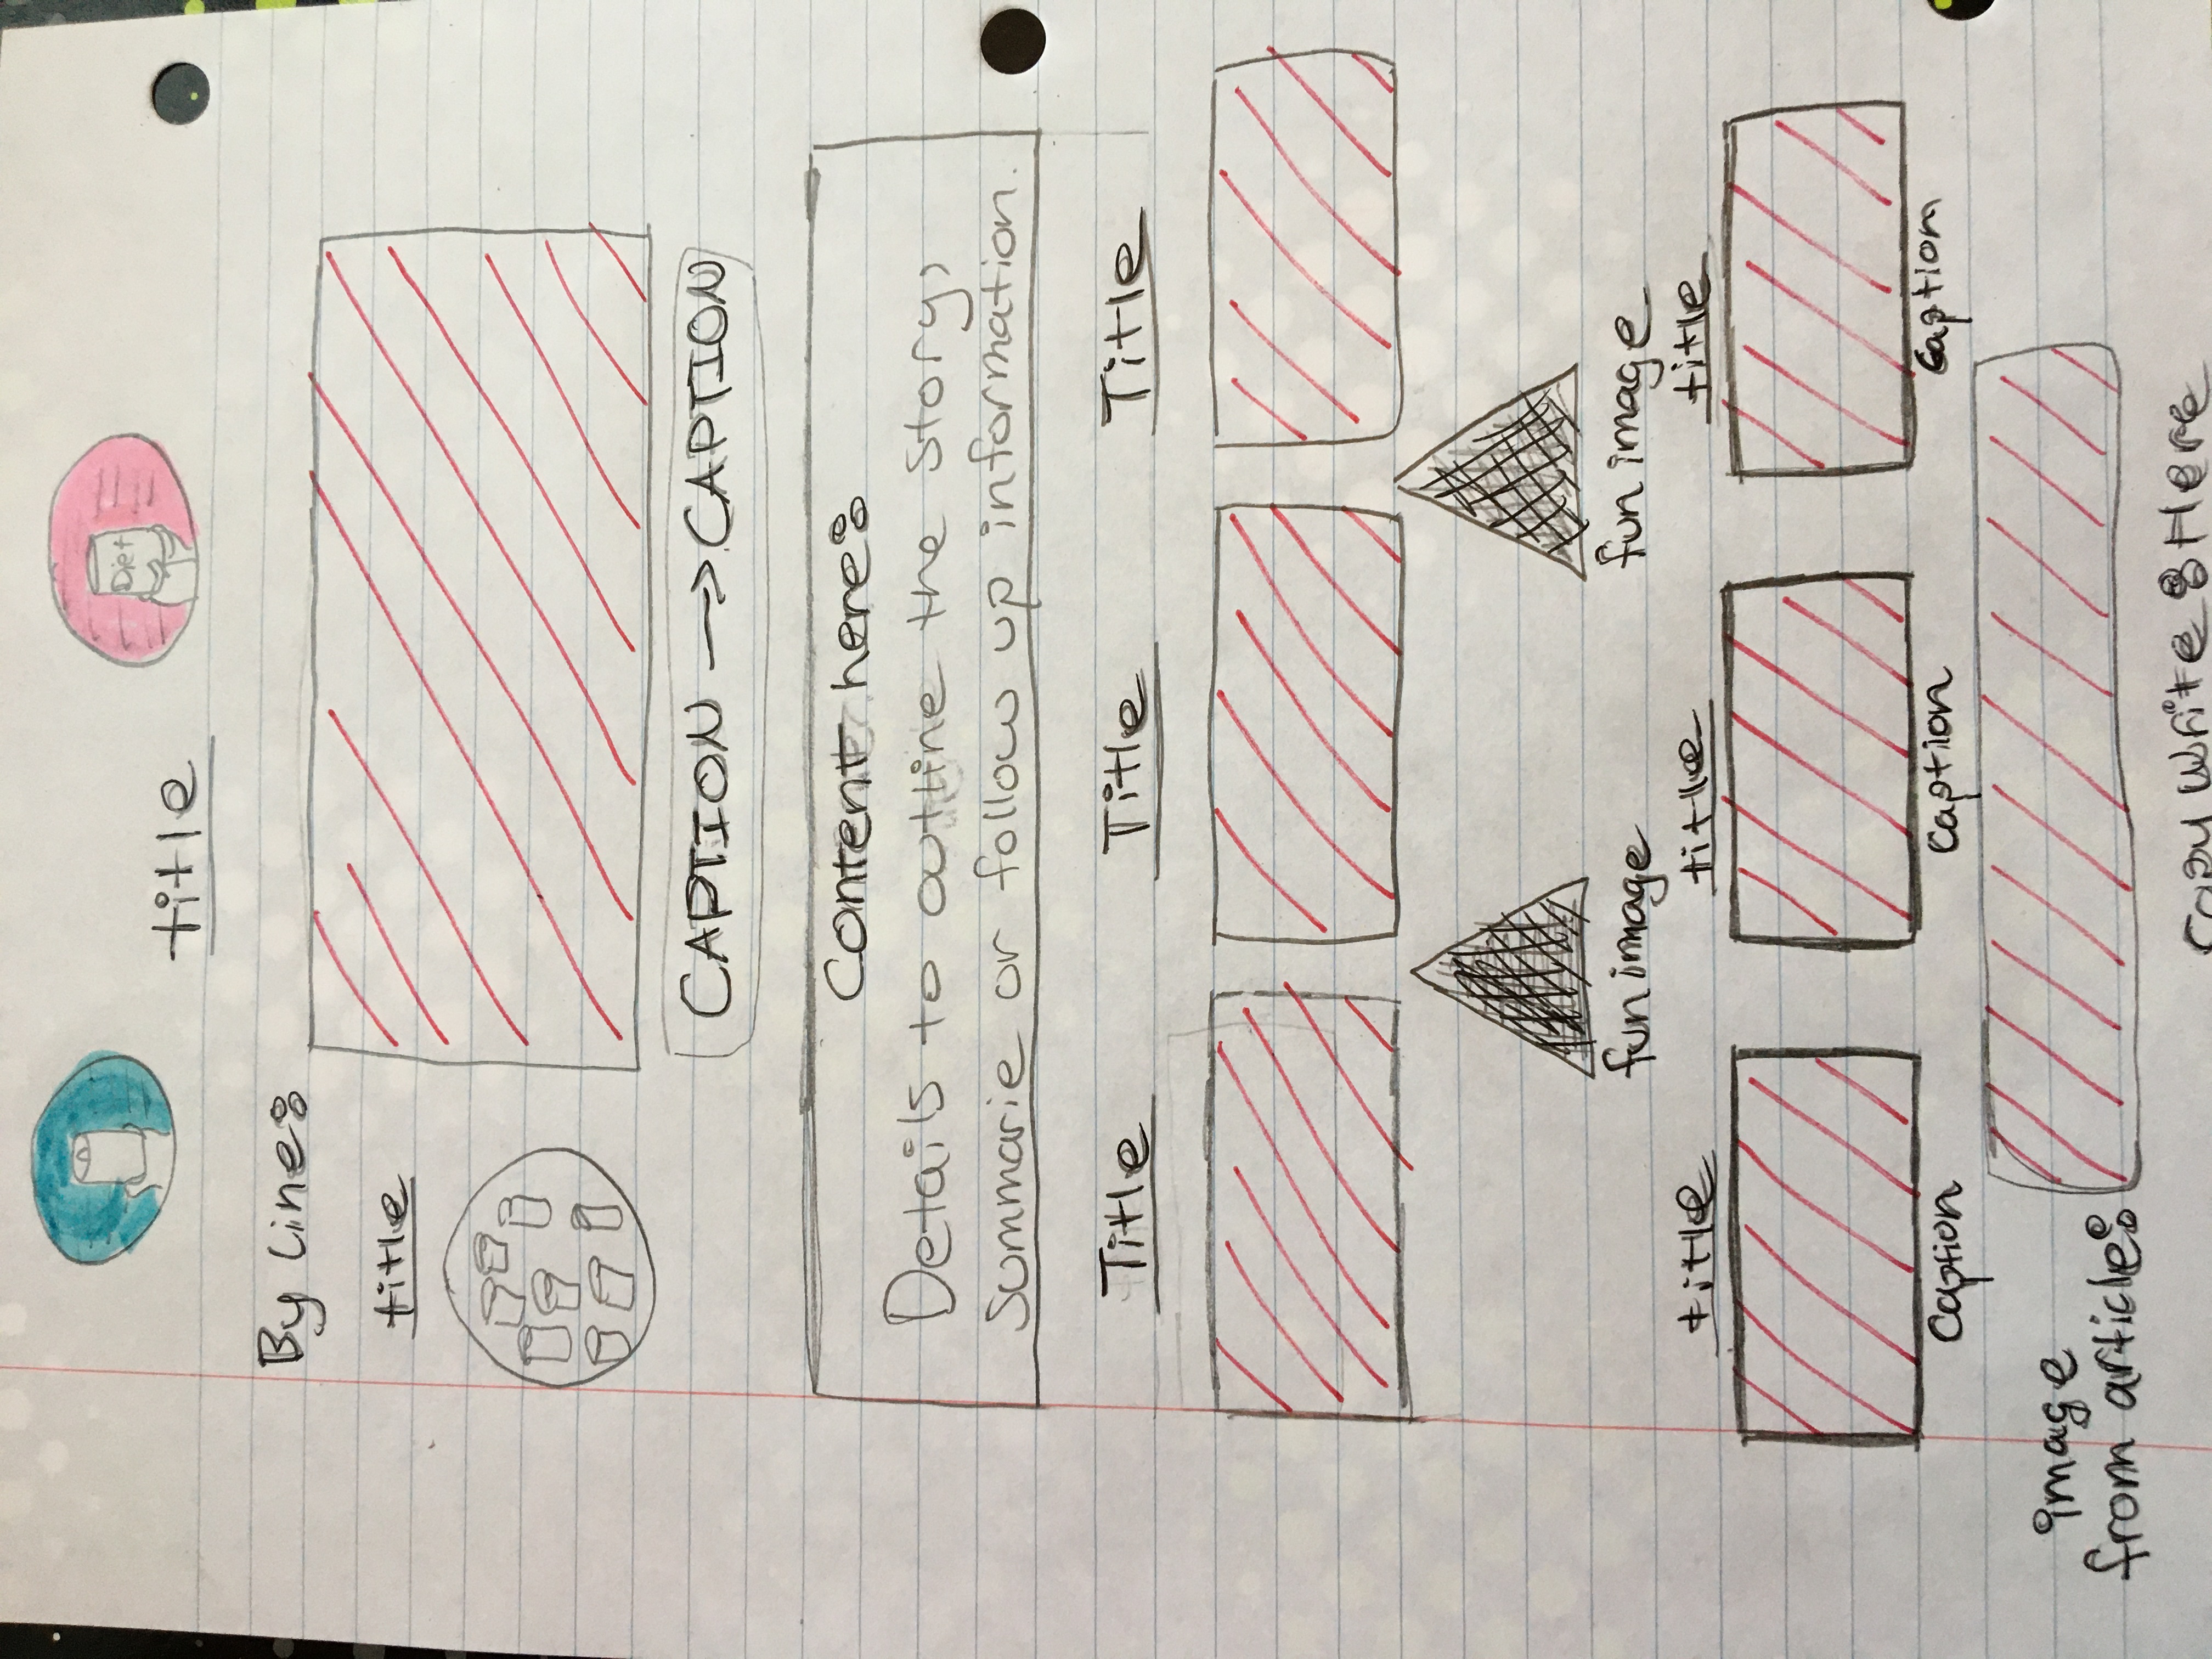 Diet
title
By line:
title
CAPTION → CAPTION
Content here:
Details to outline the story,
summarie or follow up information.
Title Title Title
fun image fun image
title title title
Caption Caption Caption
image
from article:
Copy write : Here